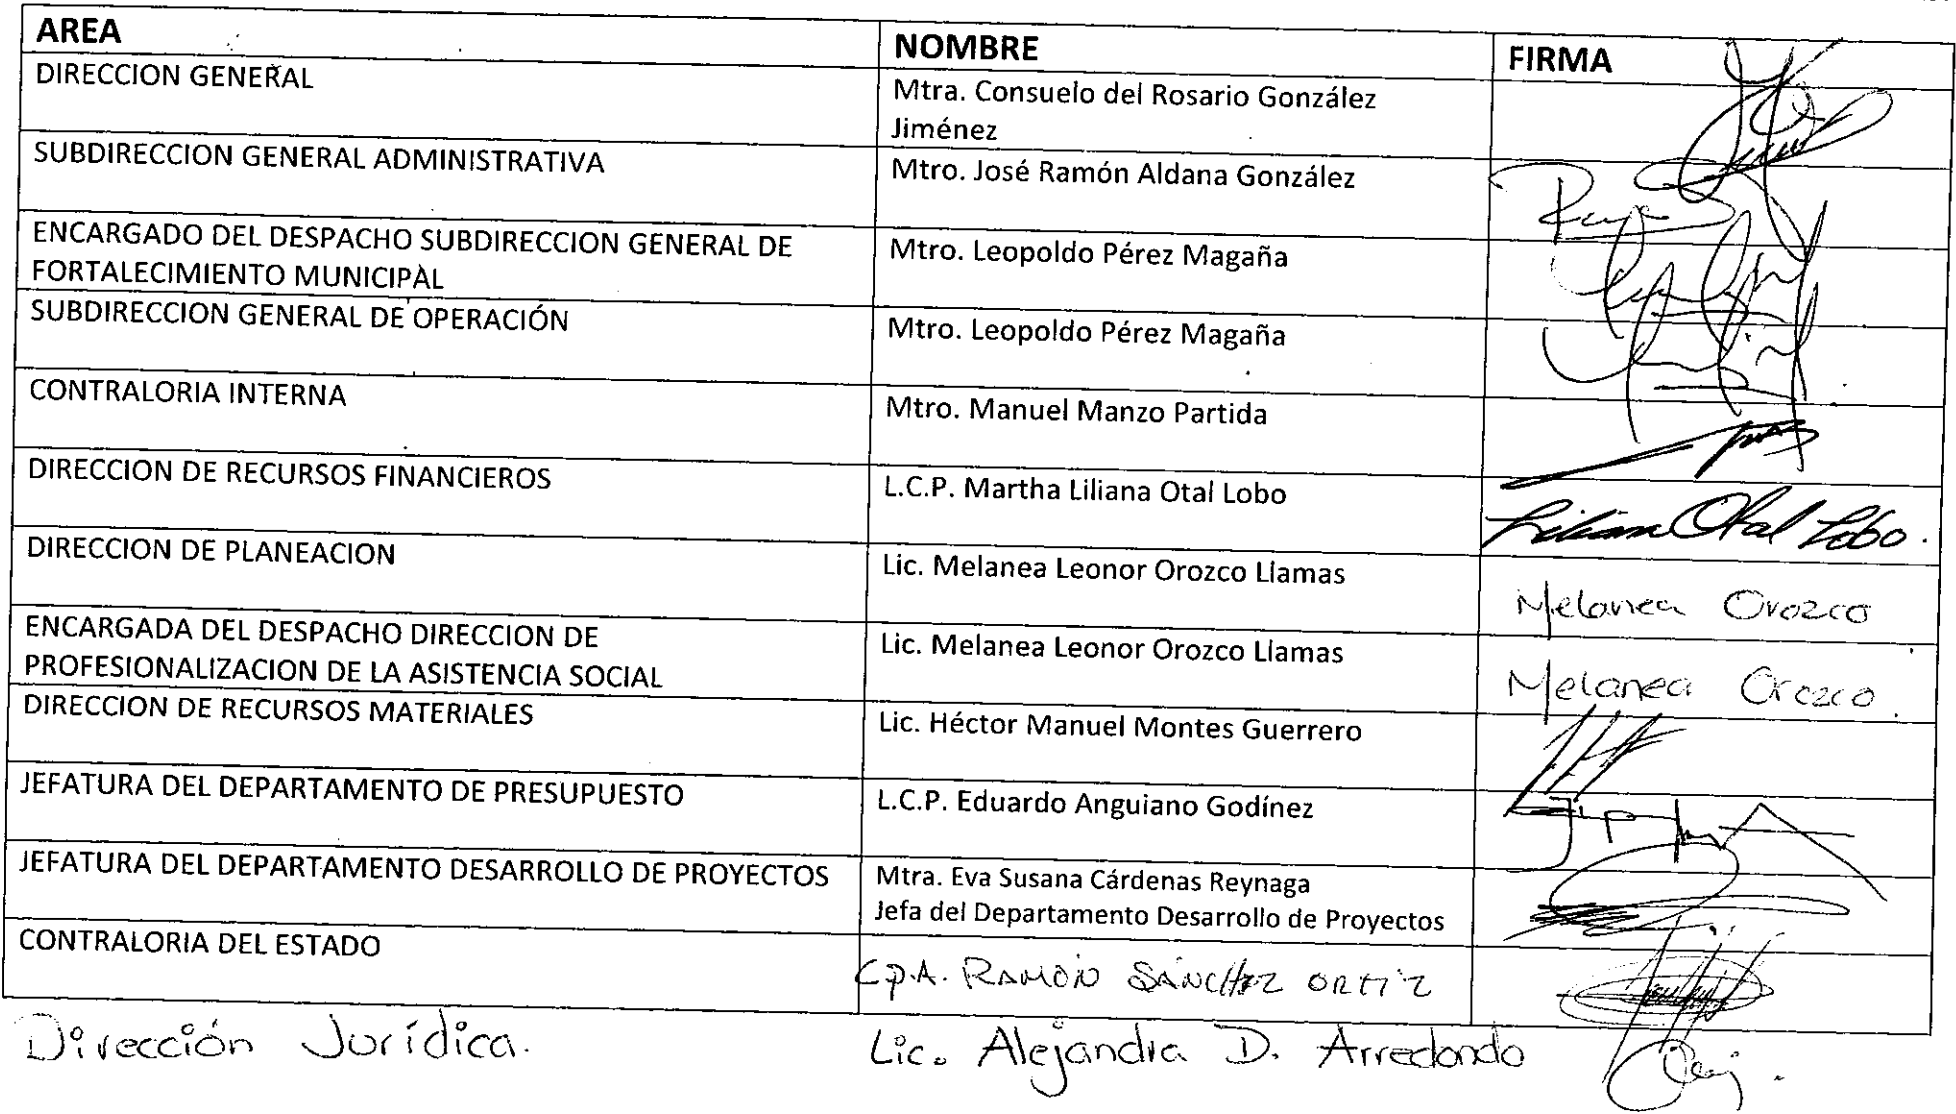 AREA NOMBRE FIRMA
DIRECCION GENERAL Mtra. Consuelo del Rosario González
Jiménez
SUBDIRECCION GENERAL ADMINISTRATIVA Mtro. José Ramón Aldana González
ENCARGADO DEL DESPACHO SUBDIRECCION GENERAL DE
FORTALECIMIENTO MUNICIPAL Mtro. Leopoldo Pérez Magaña
SUBDIRECCION GENERAL DE OPERACIÓN Mtro. Leopoldo Pérez Magaña
CONTRALORIA INTERNA Mtro. Manuel Manzo Partida
DIRECCION DE RECURSOS FINANCIEROS L.C.P. Martha Liliana Otal Lobo Lilian Otal Lobo.
DIRECCION DE PLANEACION Lic. Melanea Leonor Orozco Llamas Melanea Orozco
ENCARGADA DEL DESPACHO DIRECCION DE
PROFESIONALIZACION DE LA ASISTENCIA SOCIAL Lic. Melanea Leonor Orozco Llamas Melanea Orozco.
DIRECCION DE RECURSOS MATERIALES Lic. Héctor Manuel Montes Guerrero
JEFATURA DEL DEPARTAMENTO DE PRESUPUESTO L.C.P. Eduardo Anguiano Godínez
JEFATURA DEL DEPARTAMENTO DESARROLLO DE PROYECTOS Mtra. Eva Susana Cárdenas Reynaga
Jefa del Departamento Desarrollo de Proyectos
CONTRALORIA DEL ESTADO C.P.A. RAMÓN SÁNCHEZ ORTIZ
Dirección Jurídica. Lic. Alejandra D. Arredondo